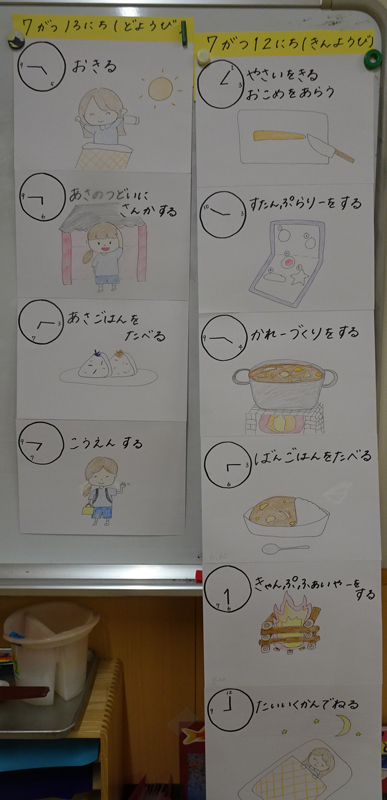 7がつ13にち(どようび)
おきる
あさのつどいに
さんかする
あさごはんを
たべる
こうえんする
7がつ12にち(きんようび)
やさいをきる
おこめをあらう
すたんぷらりーをする
かれーづくりをする
ばんごはんをたべる
きゃんぷふぁいやーを
する
たいいくかんでねる